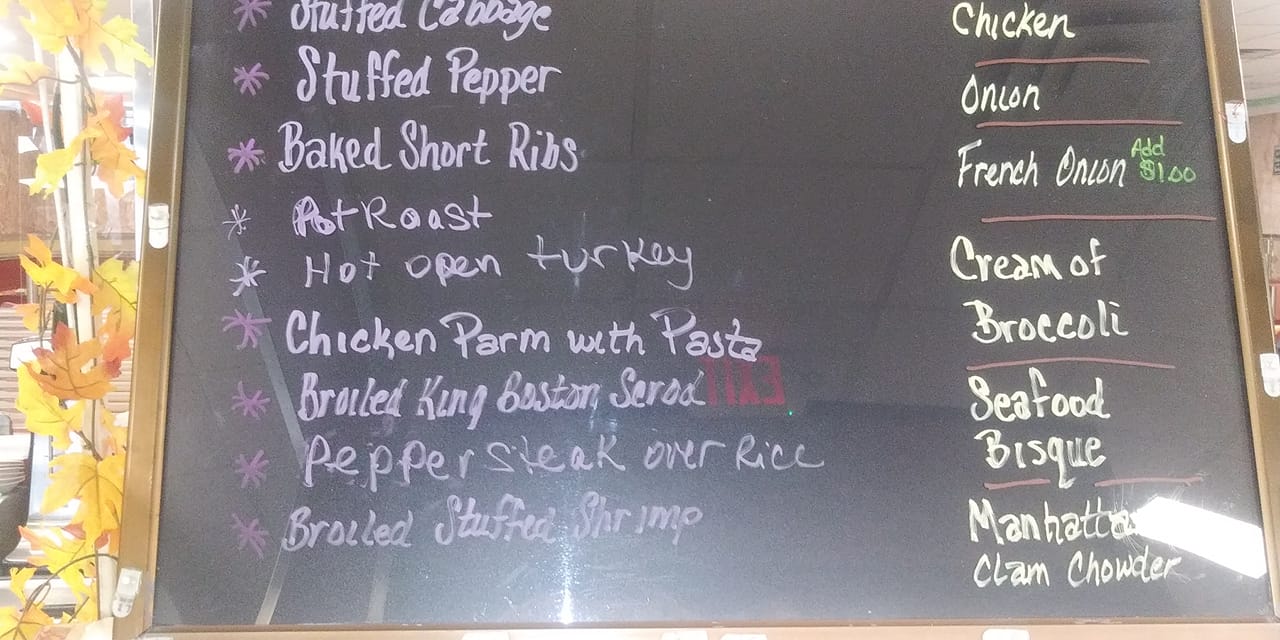 * Stuffed Cabbage
* Stuffed Pepper
* Baked Short Ribs
* Pot Roast
* Hot open turkey
* Chicken Parm with Pasta
* Broiled King Boston Scrod
* Pepper steak over Rice
* Broiled Stuffed Shrimp
EXIT
Chicken
Onion
French Onion Add $1.00
Cream of
Broccoli
Seafood
Bisque
Manhattan
Clam Chowder